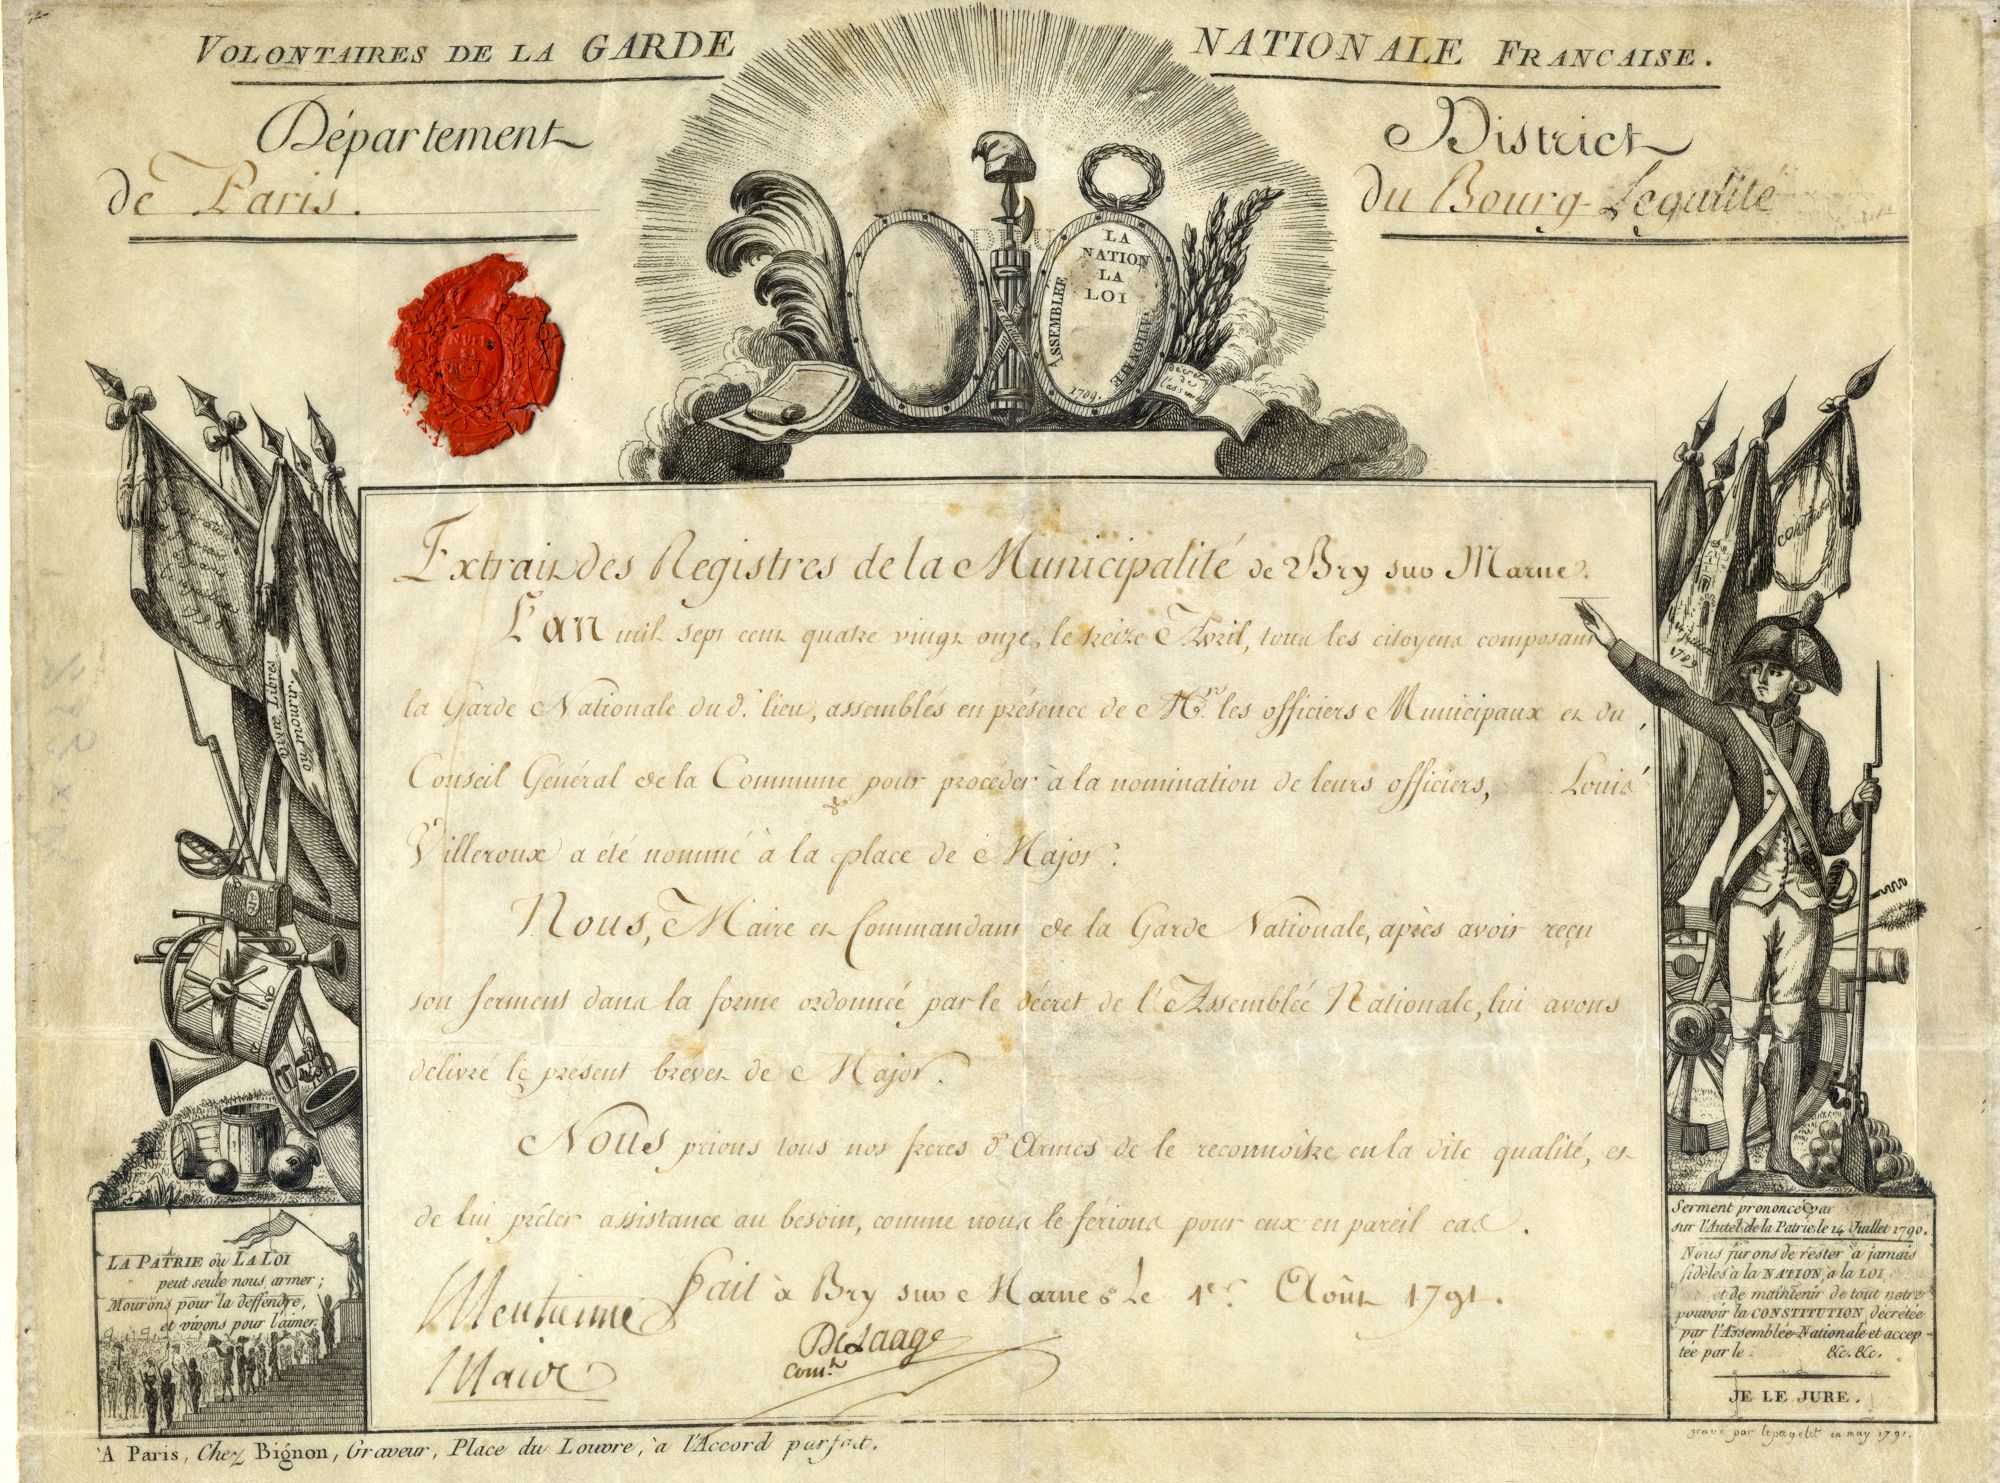 VOLONTAIRES DE LA GARDE NATIONALE FRANCAISE.
Département
de Paris.
District
du Bourg-Legalité
LA
NATION
LA
LOI
ASSEMBLÉE
1789.
décrets
de
Extrait des Registres de la Municipalité de Bry sur Marne.
L'an mil sept cent quatre vingt onze, le treize Avril, tous les citoyens composant
la Garde Nationale du d. lieu, assemblés en présence de Mrs. les officiers Municipaux et du
Conseil Général de la Commune pour procéder à la nomination de leurs officiers, Louis
Villeroux a été nommé à la place de Major.
Nous, Maire et Commandant de la Garde Nationale, après avoir reçu
son serment dans la forme ordonnée par le décret de l'Assemblée Nationale, lui avons
délivré le présent brévet de Major.
Nous prions tous nos freres d'Armes de le reconnoitre en la dite qualité, et
de lui prêter assistance au besoin, comme nous le ferions pour eux en pareil cas.
Fait à Bry sur Marne le 1er. Août 1791.
Mentienne
Maire
DeLaage
Comt.
Vivre Libres
ou mourir.
1789
LA PATRIE ou LA LOI
peut seule nous armer;
Mourons pour la deffendre,
et vivons pour l'aimer.
Serment prononcé par
sur l'Autel de la Patrie le 14 Juillet 1790.
Nous jurons de rester à jamais
fidèles à la NATION, à la LOI,
et de maintenir de tout notre
pouvoir la CONSTITUTION, décrétée
par l'Assemblée Nationale et accep-
tée par le &c. &c.
JE LE JURE.
A Paris, Chez Bignon, Graveur, Place du Louvre, à l'Accord parfait.
gravé par lepagelet en may 1791.